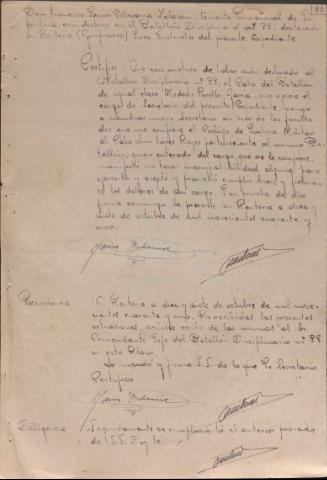 Don Francisco Javier Echevarria, teniente Provisional de In-
fantería con destino en el Batallón Disciplinario nº 88, destacado
en Rentería (Guipuzcoa) Juez Instructor del presente Expediente
Certifico: Que con motivo de haber sido destinado al
Batallón Disciplinario nº, el Cabo del Batallón
de igual clase Modesto García, que ejercía el
cargo de Secretario del presente Expediente, vengo
a nombrar nuevo Secretario en uso de las faculta-
des que me confiere el Código de Justicia Militar
al Cabo Rojas perteneciente al mismo Ba-
tallón, quien enterado del cargo que se le confiere,
manifestó no tener incompatibilidad alguna para
ejercerlo y acepta y prometió cumplir bien y fielmen-
te los deberes de su cargo. Y en prueba de ello
firma conmigo la presente en Rentería a diez y
siete de octubre de mil novecientos cuarenta y
uno.
Javier Echevarria
Providencia En Rentería a diez y siete de octubre de mil nove-
cientos cuarenta y uno. las presentes
actuaciones, al Sr.
Comandante Jefe del Batallón Disciplinario nº 88
en esta Plaza.
Lo mandó y firma S.S. de lo que yo Secretario
Certifico
Javier Echevarria
Diligencia Seguidamente se cumplimentó el anterior proveido
de S.S. Doy fe